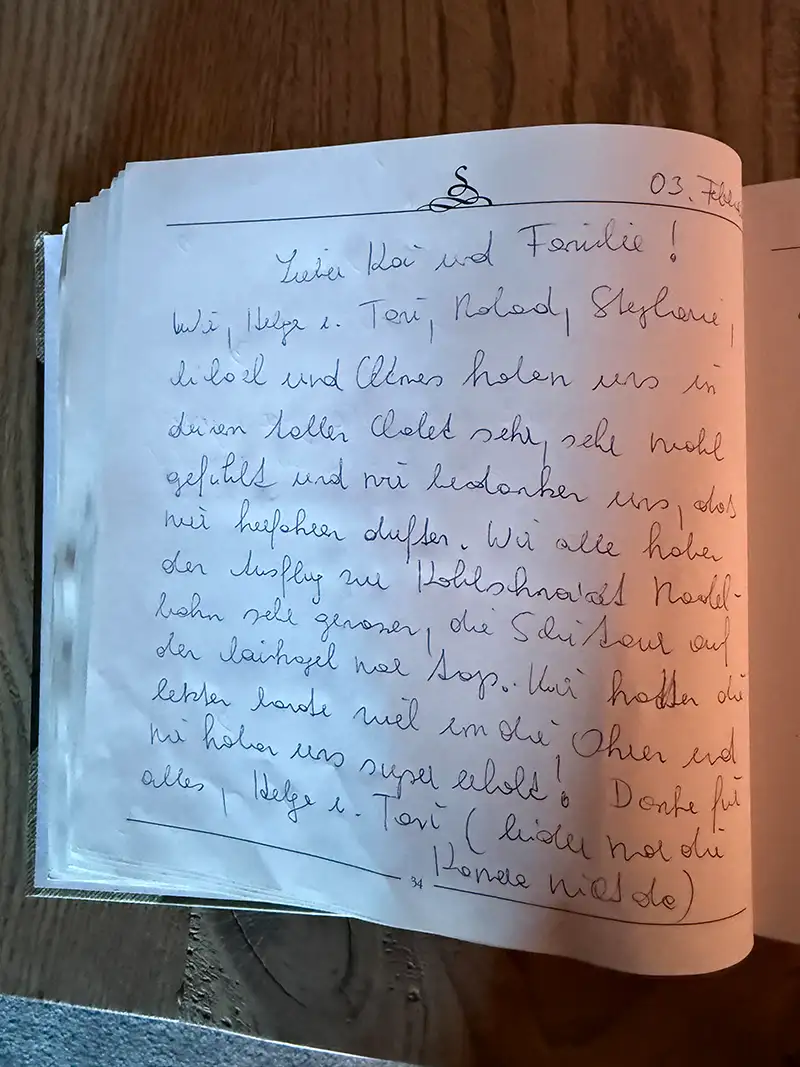 03. Februa
Lieber Kai und Familie!
Wir, Helge u. Toni, Stephanie,
und haben uns in
deinen tollen Chalet sehr, sehr wohl
gefühlt und wir bedanken uns, das
wir herfahren duften. Wir alle haben
den Ausflug zur Kohlschnait Rodel-
bahn sehr genossen, die Schi Tour auf
den war top. Wir hatten die
letzten viel um die Ohren und
wir haben uns super erholt! Danke für
alles, Helge u. Toni (leider war die
nicht da)
34